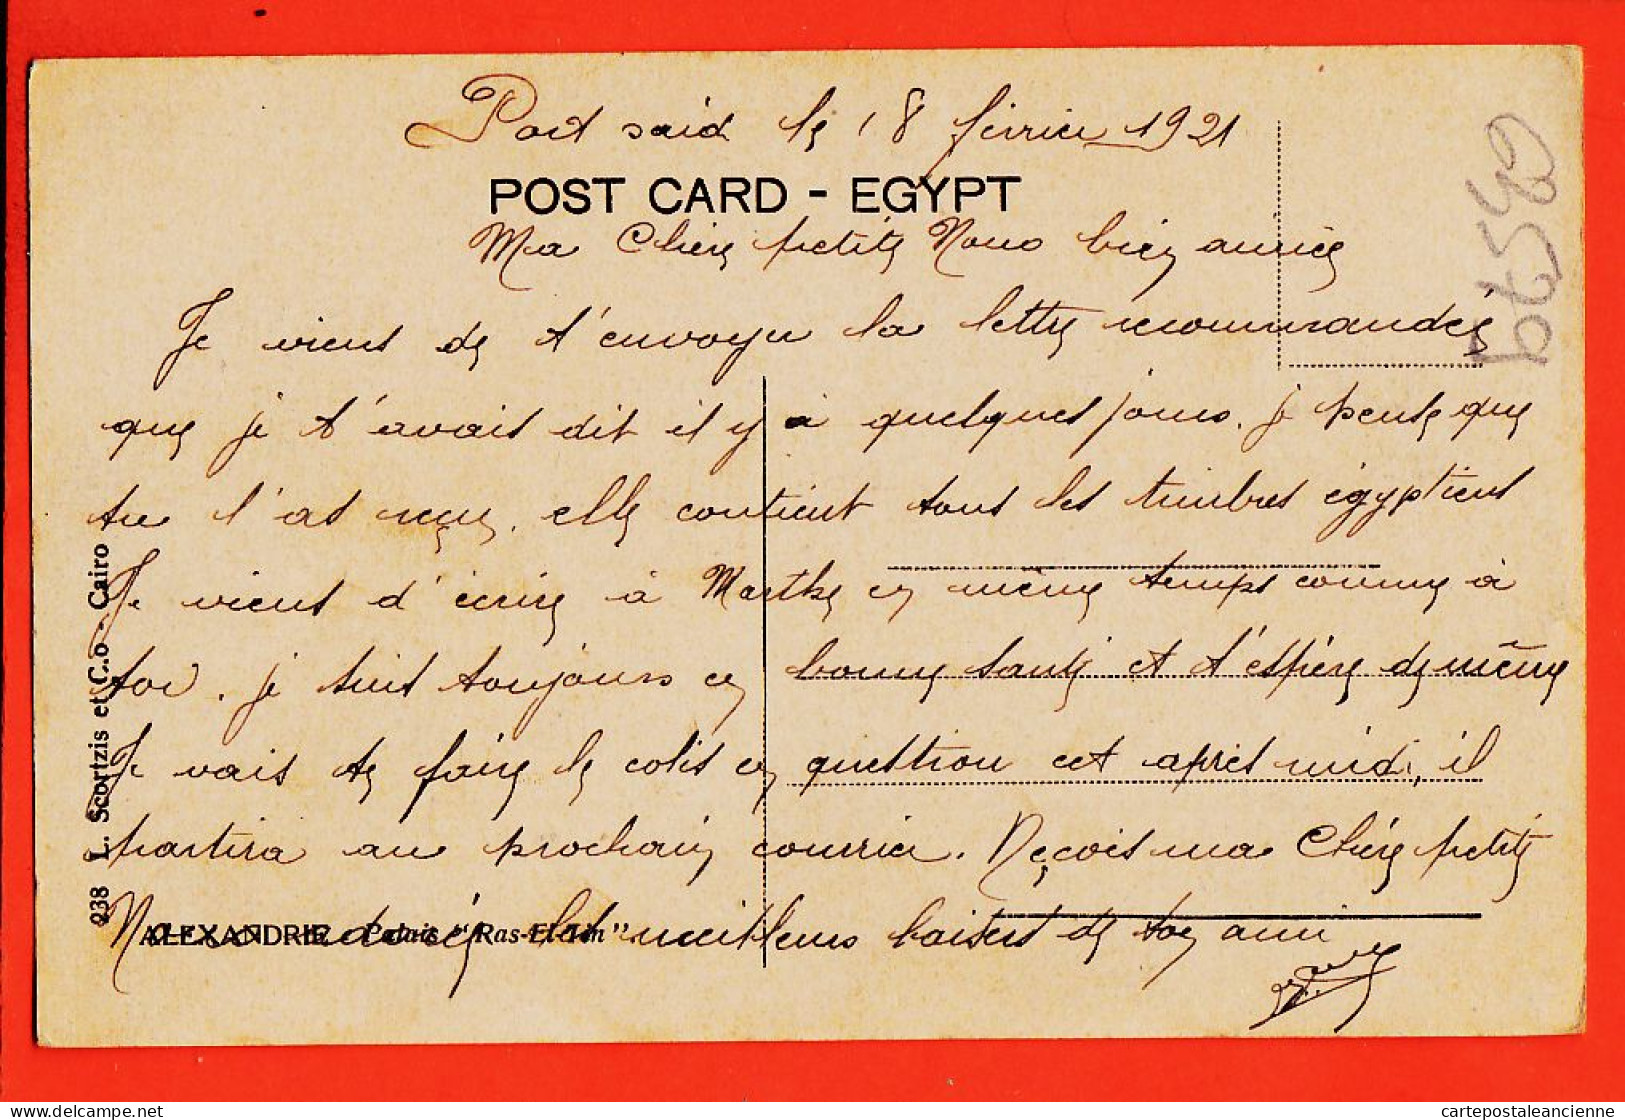 Port said le 18 février 1921
POST CARD - EGYPT
Ma Chère petite Nono bien aimée
Je viens de t'envoyer la lettre recommandée
que je t'avais dit il y a quelques jours. je pense que
tu l'as reçue. elle contient tous les timbres égyptiens
Je viens d'écrire à Marthe en même temps comme à
toi. je suis toujours en bonne santé et t'espère de même
Je vais te faire le colis en question cet après midi, il
partira au prochain courrier. Reçois ma Chère petite
les meilleurs baisers de ton ami
ALEXANDRIE - Palais "Ras-El-Tin"
238 L. Scortzis et C.o - Cairo
delcampe.net
cartepostaleancienne